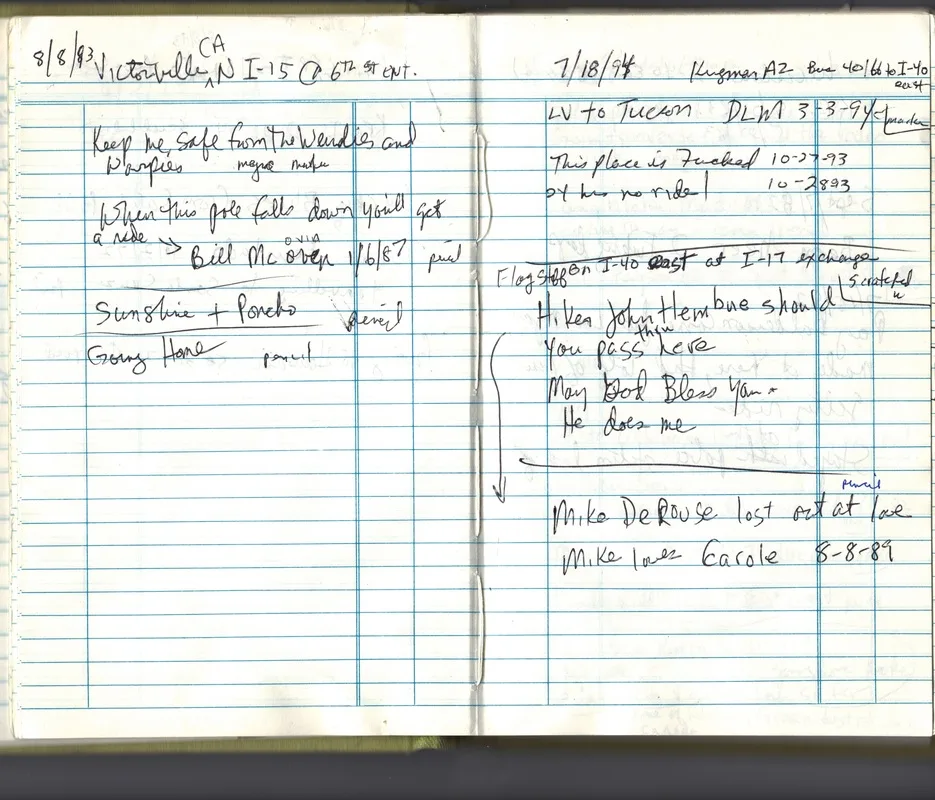 8/8/93 Victorville, CA N I-15 @ 6th St ENT.
Keep me safe from the Weirdies and
Warpies magic marker
When this pole falls down you'll get
a ride → Bill McOven ovia 1/6/87 pencil
Sunshine + Poncho pencil
Going Home pencil
7/18/94 Kingman AZ Bus 40/66 to I-40
east
LV to Tucson DLM 3-3-94 - marker
This place is Fucked 10-27-93
has no ride! 10-2893
Flagstaff on I-40 east at I-17 exchange
Hiker John Hembue should scratched
in
You pass thru here
May God Bless You.
He does me
pencil
Mike DeRouse lost out at love
Mike loves Carole 8-8-89